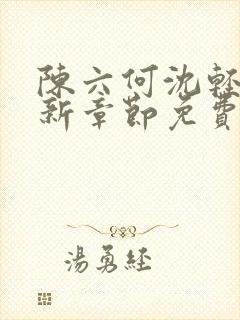 陳六何沈輕
新章節免費
湯勇經